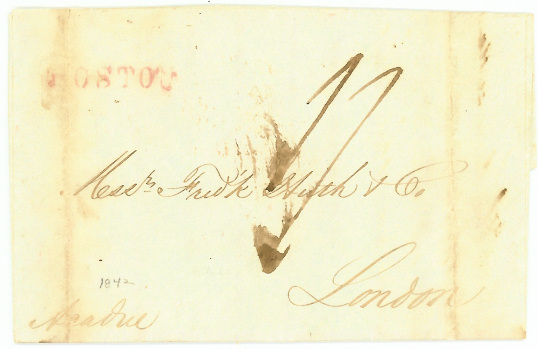 BOSTON
Mess.rs Fred'k Huth & Co
London
1842